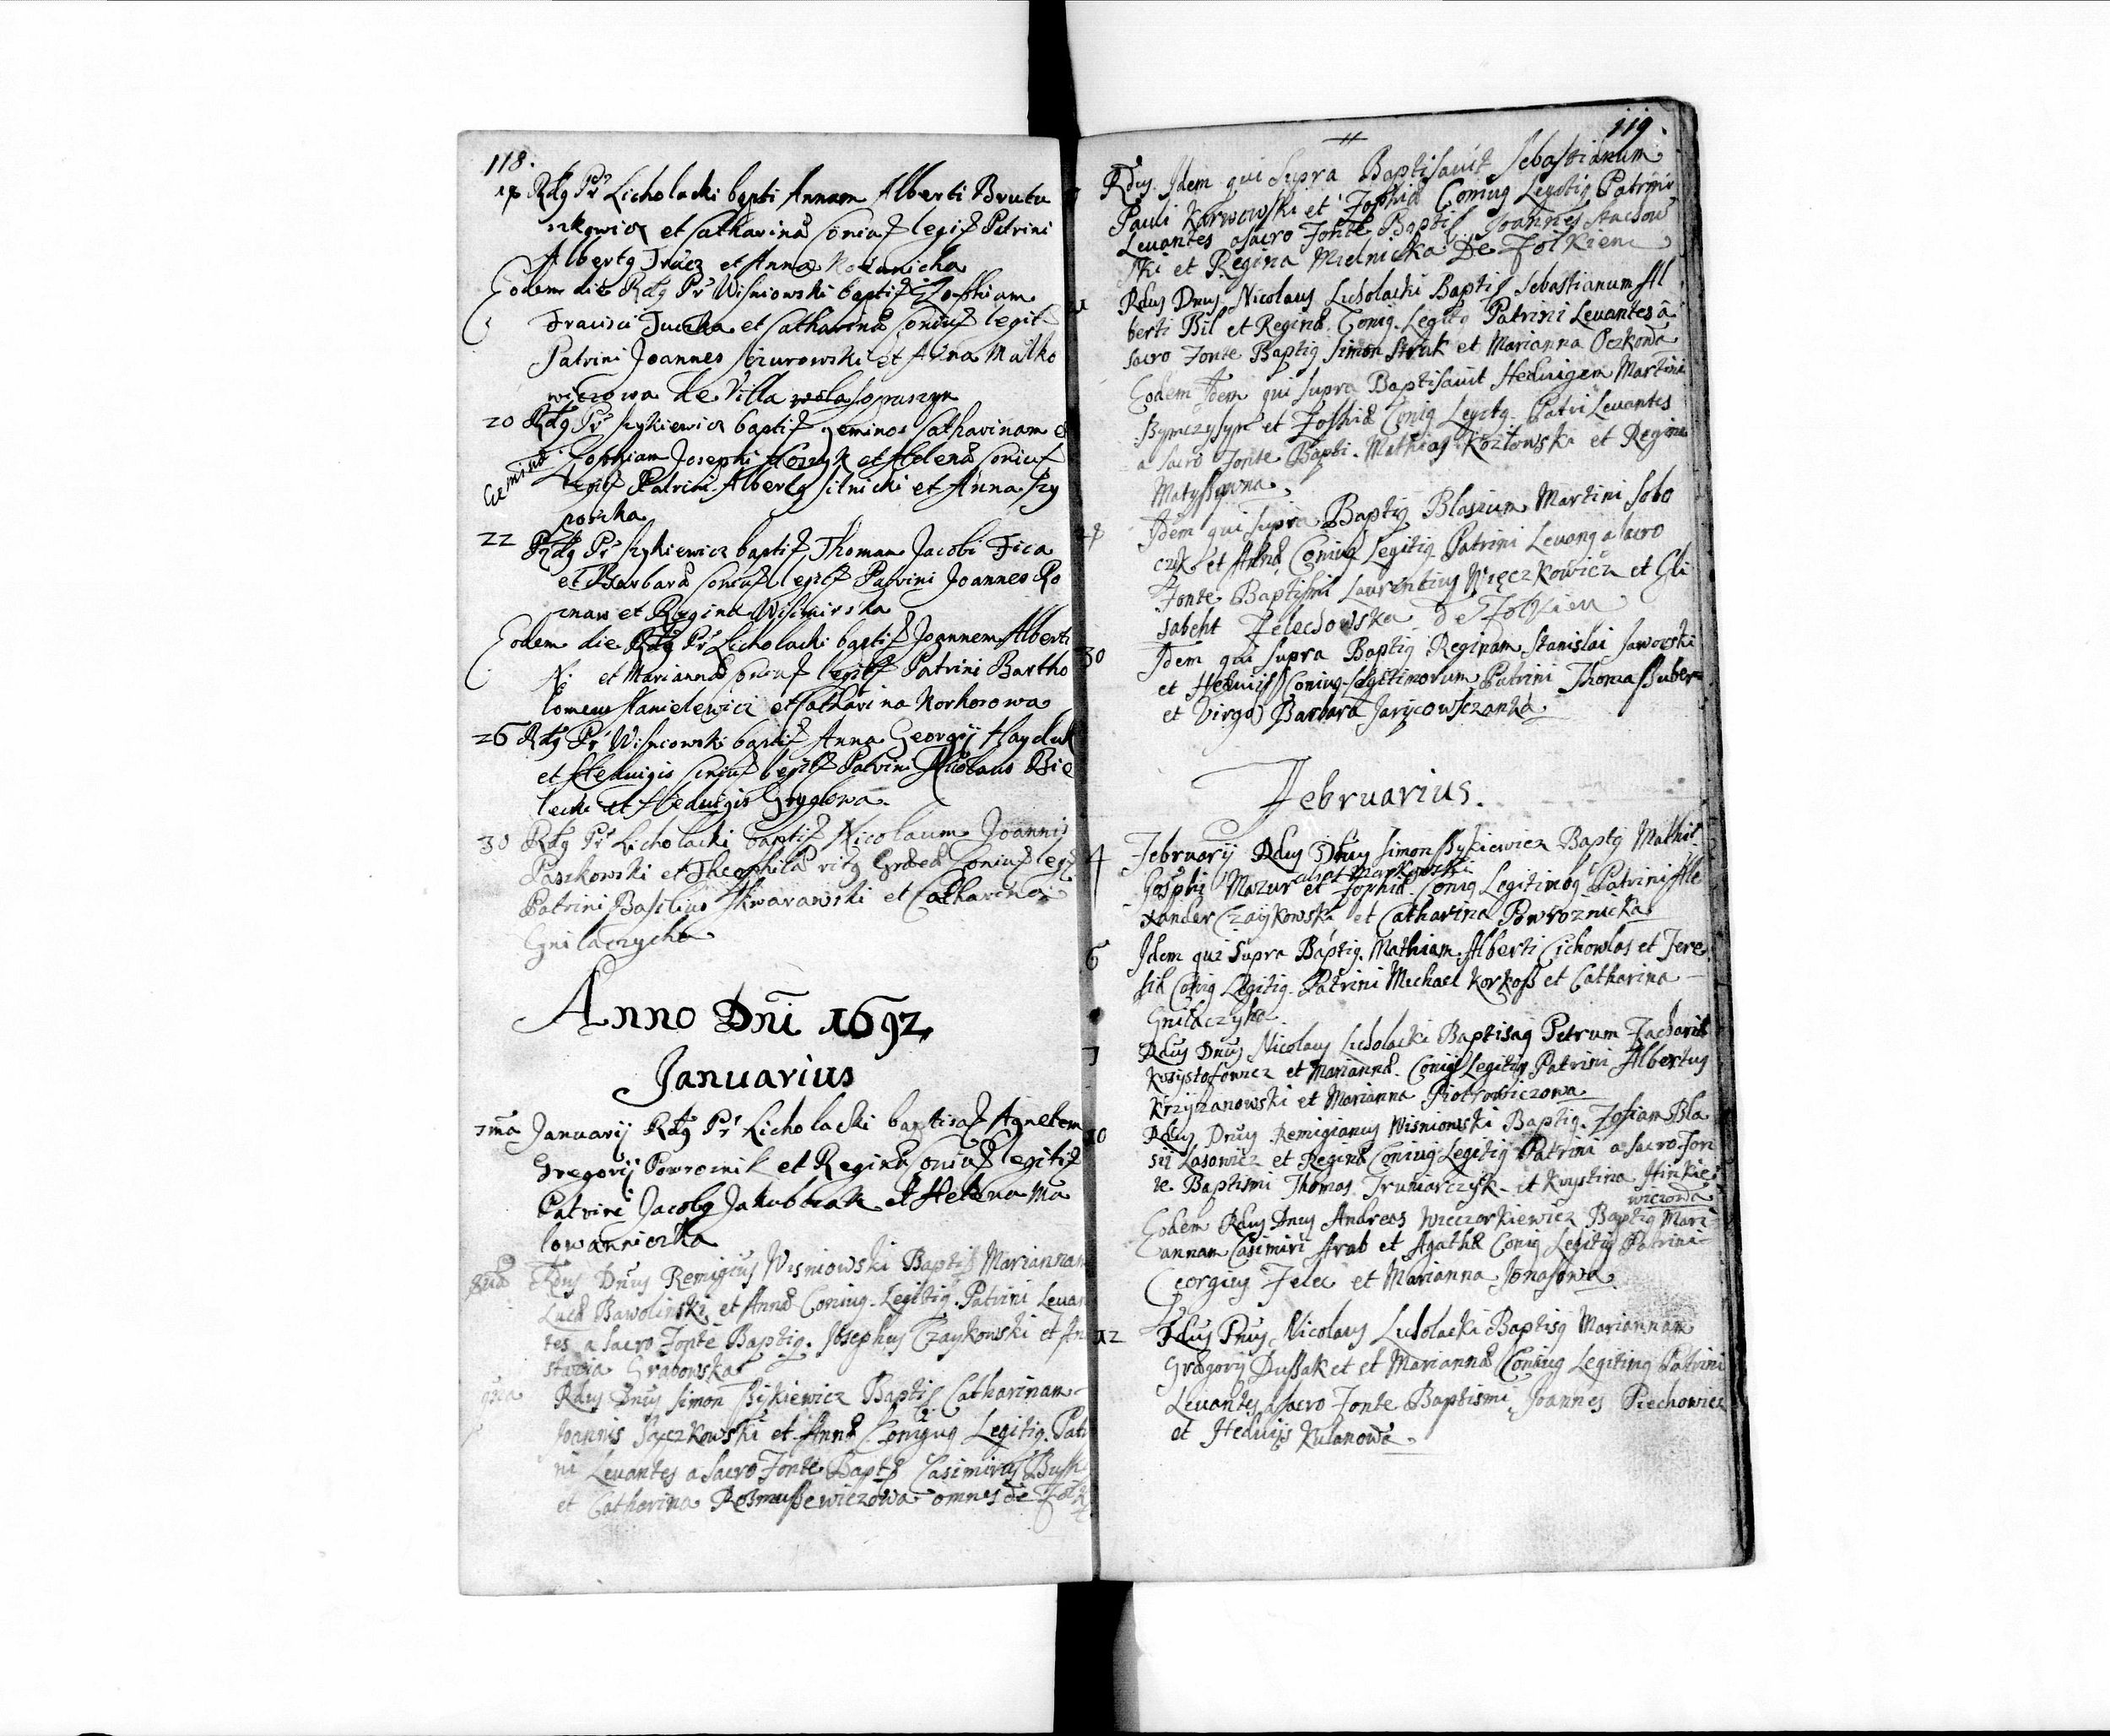 118.
17 Rdg Pr Licholacki bapti Annam Alberti Brutu
szkowicz et Catharina Coniug legit Patrini
Albertg Tracz et Anna
Eodem die Rdg Pr Wisniowski baptis Zophiam
Francisci Juczka et Catharina Coniug legit
Patrini Joannes Sczurowski et Anna Malko
wiczowa de Villa Sopuszyn
20 Rdg Pr Szykiewicz baptis geminos Catharinam et
Gemini Zophiam Josephi et Helena Coniug
legit Patrini Albertg Silnicki et Anna Szy
poszka
22 Rdg Pr Szykiewicz baptis Thomam Jacobi Fica
et Barbara Coniug legit Patrini Joannes Ro
man et Regina Wismirska
Eodem die Rdg Pr Licholacki baptis Joannem Alberti
N. et Marianna Coniug legit Patrini Bartho
lomeus Stanielewicz et Catharina Korkosowa
26 Rdg Pr Wisniowski baptis Anna Georgij Hayduk
et Heduigis Coniug legit Patrini Nicolaus Bie
lecki et Heduigis Gryglowa
30 Rdg Pr Licholacki baptis Nicolaum Joannis
Paszkowski et Theophila ritg Graeca Coniug legit
Patrini Basilius Skwarawski et Catharina
Gnilaczycha
Anno Dni 1692
Januarius
1ma Januarij Rdg Pr Licholacki baptisas Agnetem
Gregorij Powroznik et Regina Coniug legitis
Patrini Jacobg Jakubczak et Helena Ma
lowanniczka
Rdus Dnus Remigius Wisniowski Baptis Mariannam
Luca Bawolinski et Anna Coniug. Legitig. Patrini Levan
tes a Sacro Fonte Baptig. Josephus Czaykowski et An
stazia Grabowska
Rdus Dnus Simon Szykiewicz Baptis Catharinam
Joannis Saczkowski et Anna Coniug Legitig. Patri
ni Levantes a Sacro Fonte Bapts Casimirus
et Catharina Rosmussewiczowa omnes de Zolk
119.
Rdus Idem qui Supra Baptisauit Sebastianum
Pauli Karwowski et Zophia Coniug Legitig Patrini
Levantes a Sacro Fonte Baptis Joannes Stachow
ski et Regina Mielnicka De Zolkiew
Rdus Dnus Nicolaus Licholacki Baptis Sebastianum Al
berti Bil et Regina Conig. Legitg Patrini Levantes a
Sacro Fonte Baptig Simon Struk et Marianna Oczkowa
Eodem Idem qui Supra Baptisauit Heduigem Martini
et Zophia Conig Legitg. Patri Levantes
a Sacro Fonte Bapti. Mathias Kozlowski et Regina
Matyssowna
Idem qui Supra Baptig Blasium Martini Sobo
czyk et Anna Coniug Legitig Patrini Levang a Sacro
Fonte Baptismi Laurentius Więczkowicz et Eli
sabeht Zelechowska De Zolkiew
30 Idem qui Supra Baptig Reginam Stanislai Jaworski
et Heduigis Coniug Legitimorum Patrini Thomas Szuber
et Virgo Barbara Jarycowsczanka
Februarius.
4 Februarij Rdus Dnus Simon Szykiewicz Baptg Mathia
alias Markowski
Josephi Mazur et Zophia Coniug Legitimog Patrini Ale
xander Czaykowski et Catharina Powroznicka
6 Idem qui Supra Baptig. Mathiam Alberti Cichowlas et Tere
sia Coniug Legitig. Patrini Michael Korkoss et Catharina
Gnilaczyka
7 Rdus Dnus Nicolaus Licholacki Baptisag Petrum Zacharia
Krzystofowicz et Marianna. Coniug Legitig Patrini Albertus
Krzyzanowski et Marianna Piotrowiczowa
10 Rdus Dnus Remigianus Wisniowski Baptig. Zofiam Bla
sii Lasowicz et Regina Coniug Legitig Patrini a Sacro Fon
te Baptismi Thomas Truniarczyk et Krystina Hinkie
wiczowa
Eodem Rdus Dnus Andreas Wieczorkiewicz Baptig Mari
annam Casimiri Arab et Agatha Coniug Legitig Patrini
Georgius Felec et Marianna Jonasowa
12 Rdus Dnus Nicolaus Licholacki Baptisg Mariannam
Gregorij Dussak et et Marianna Coniug Legitimg Patrini
Levantes a Sacro Fonte Baptismi Joannes Piechowicz
et Heduigis Kulanowa